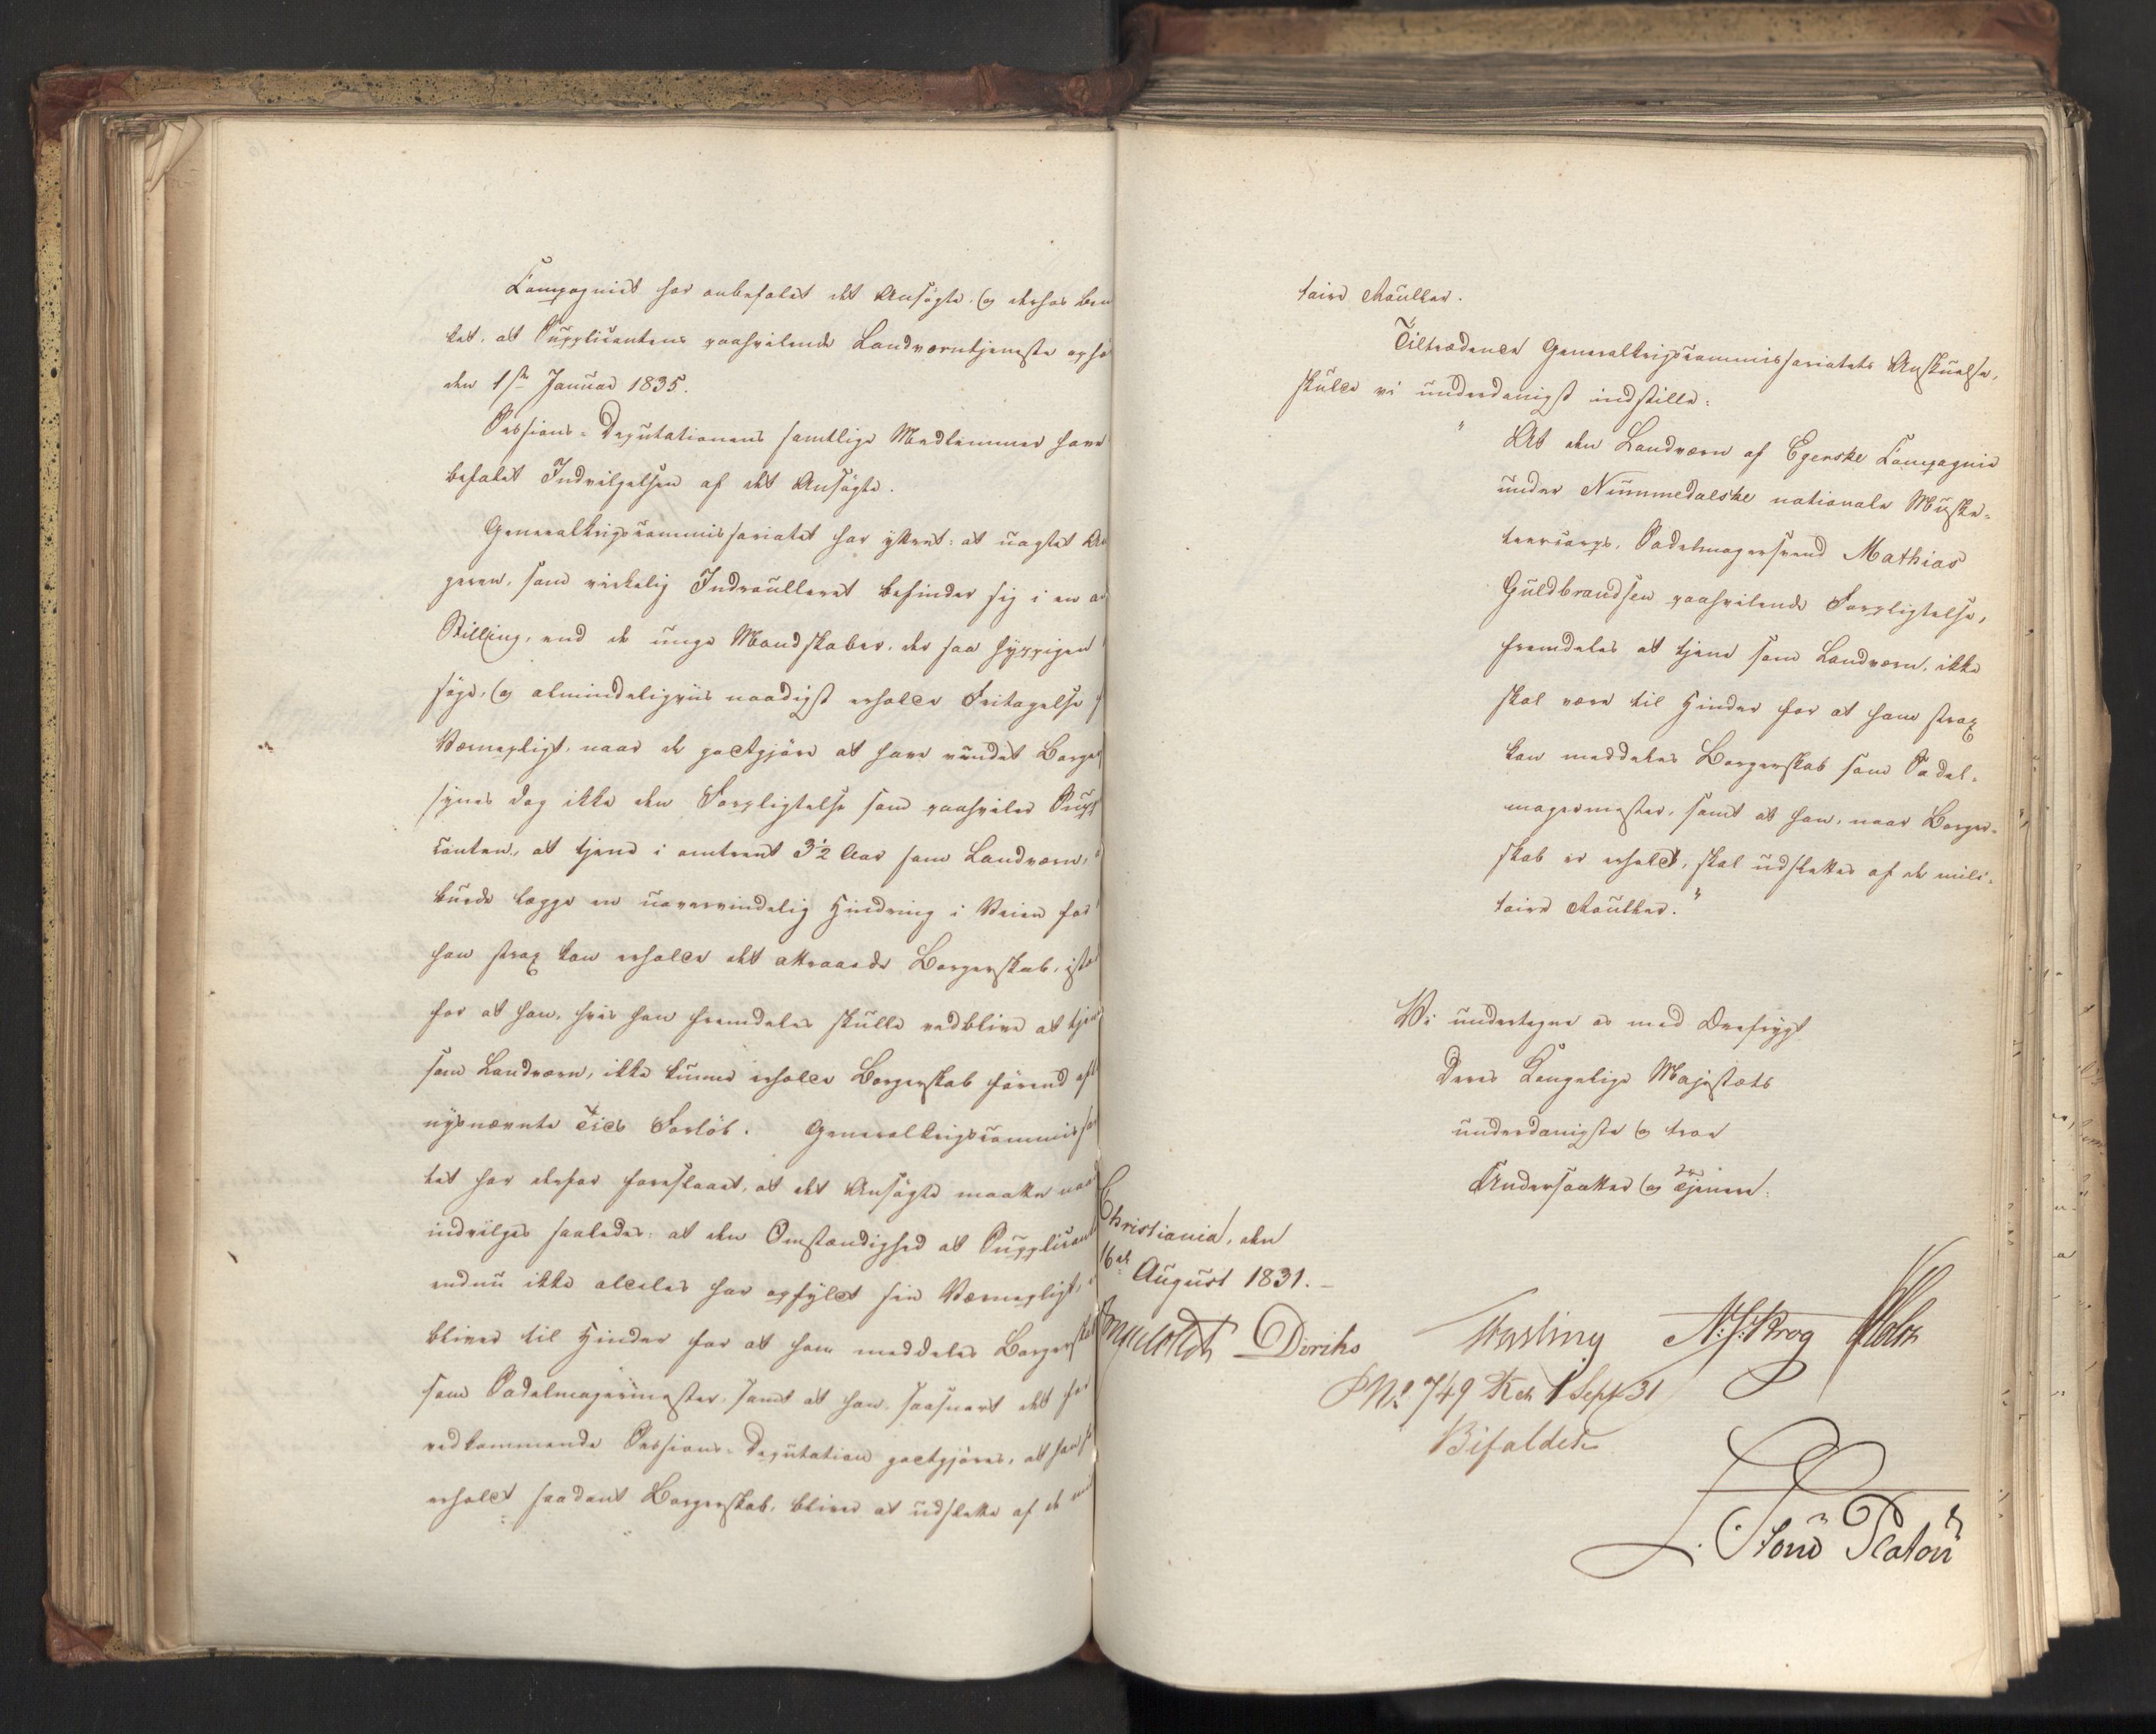 Compagniet har anbefalet det Ansøgte, og derhos bem
ket, at Supplicantens paahvilende Landværntjeneste ophø
den 1ste Januar 1835.
Sessions-Deputationens samtlige Medlemmer have
befalet Indvilgelsen af det Ansøgte.
Generalkrigscommissariatet har yttret: at uagtet An
geren, som virkelig Indroulleret befinder sig i en an
Stilling, end de unge Mandskaber, der saa hyppigen
søge, og almindeligviis naadigst erholde Fritagelse f
Værnepligt, naar de godtgjøre at have vundet Borger
synes dog ikke den Forpligtelse som paahviler Suppl
canten, at tjene i omtrent 3½ Aar som Landværn,
burde lægge en uovervindelig Hindring i Veien for
han strax kan erholde det attraaede Borgerskab, iste
for at han, hvis han fremdeles skulle vedblive at tjene
som Landværn, ikke kunne erholde Borgerskab førend eft
nysnævnte Tids Forløb. Generalkrigscommissa
tet har derfor foreslaaet, at det Ansøgte maatte naa
indvilges saaledes: at den Omstændighed at Supplicant
endnu ikke aldeles har opfyldt sin Værnepligt,
bliver til Hinder for at ham meddeles Borgerskab
som Sadelmagermester, samt at han, saasnart det for
vedkommende Sessions-Deputation godtgjøres, at han
erholdt saadant Borgerskab, bliver at udslette af de mili
taire Rouller.
Tiltrædende Generalkrigscommissariatets Anskuelse,
skulle vi underdanigst indstille:
" At den Landværn af Egerske Compagnie
under Nummedalske nationale Muske-
teercorps, Sadelmagersvend Mathias
Guldbrandsen paahvilende Forpligtelse,
fremdeles at tjene som Landværn, ikke
skal være til Hinder for at ham strax
kan meddeles Borgerskab som Sadel-
magermester, samt at han, naar Borger-
skab er erholdt, skal udslettes af de mili-
taire Rouller."
Vi undertegne os med Ærefrygt
Deres Kongelige Majestæts
underdanigste og troe
Undersaatter og Tjenere:
Christiania, den
16de August 1831.
Diriks N. J. Krog Holst
P No 749 Res 1 Sept 31
Bifaldes
Stoud Platou